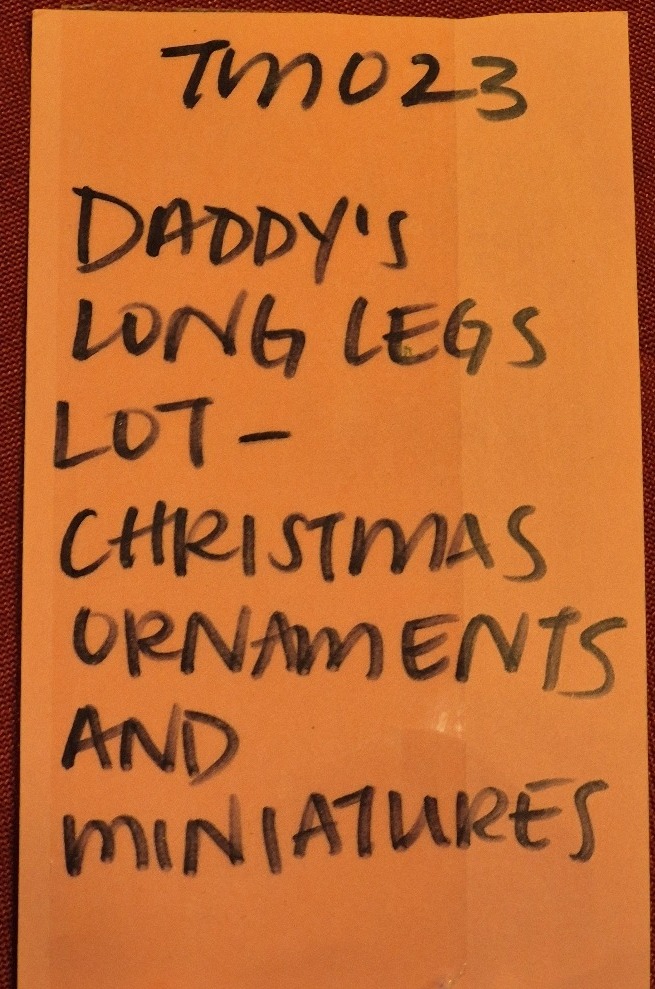 TM023
DADDY'S
LONG LEGS
LOT -
CHRISTMAS
ORNAMENTS
AND
MINIATURES